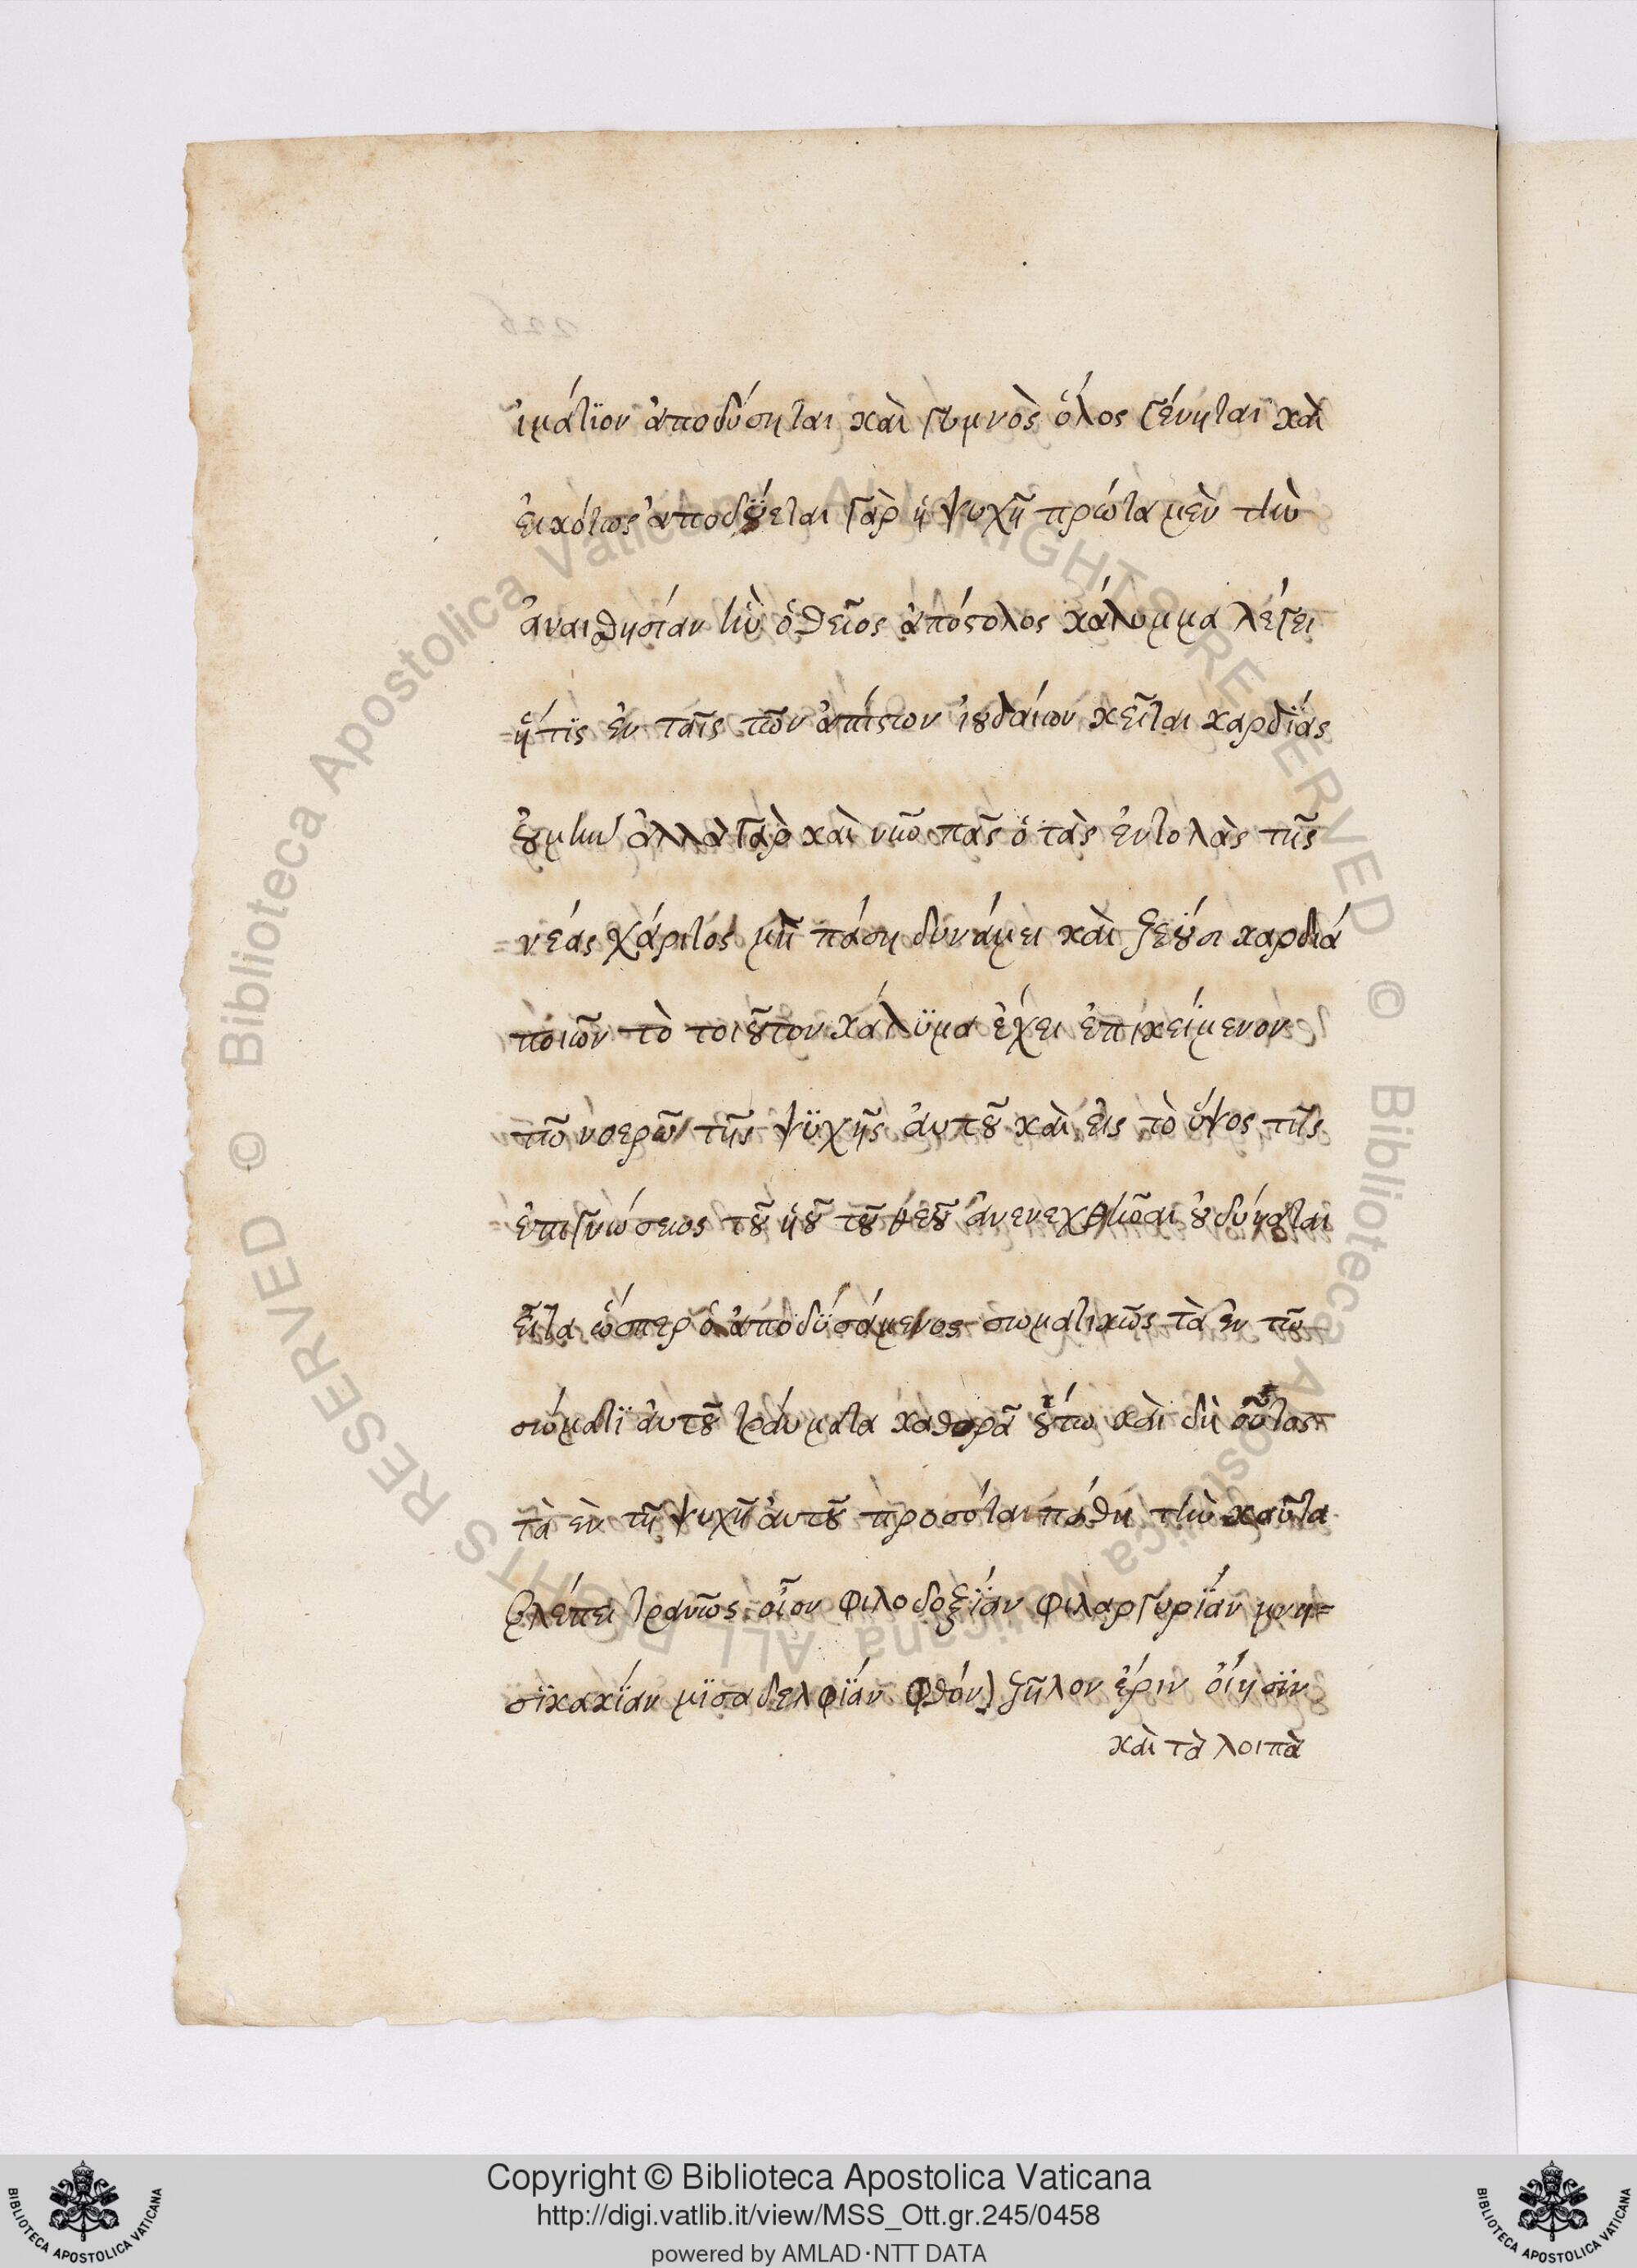 ἱμάτϊον ἀποδύσηται καὶ γυμνὸς ὅλος γένηται καὶ
ἐικότως ἀποδύεται γὰρ ἡ ψυχῆ πρώτα μὲν τὴν
ἀναισθησίαν ἣν ὁ θεῖος ἀπόστολος κάλυμμα λέγει
ἥτϊς ἐν ταῖς τῶν ἀπίστον ἰουδαίων κεῖται καρδϊάς
οὐ μὴν ἀλλὰ γὰρ καὶ νῦν πᾶς ὁ τὰς ἐντολὰς τῆς
νεάς χάριτός μὴ πάση δυνάμει καὶ ζεούσι καρδιά
ποιῶν τὸ τοιοῦτον κάλϋμα ἔχει ἐπικείμενον
τῶ νοερῶ τῆς ψϋχῆς ἀυτοῦ καὶ εἰς τὸ ὕψος τῆς
ἐπιγνώσεως τοῦ ὑοῦ τοῦ θεοῦ ἀνενεχθῆναι οὐ δύναται
εἶτα ὥσπερ ὁ ἀποδϋσάμενος σωματικῶς τὰ ἐν τῶ
σώματϊ ἀυτοῦ τράυματα καθορᾶ οὕτω καὶ δὴ οὗτος
τὰ ἐν τῆ ψυχῆ ἀυτοῦ προσόται πάθη τὴν καῦτα
βλέπει τρανῶς οἷον φιλοδοξϊάν φιλαργυρϊάν μνη=
σϊκακϊάν μϊσαδελφϊάν φθόνον ζῆλον ἔριν ὄιησϊν
καὶ τὰ λοιπὰ
Copyright © Biblioteca Apostolica Vaticana
http://digi.vatlib.it/view/MSS_Ott.gr.245/0458
powered by AMLAD·NTT DATA
BIBLIOTECA APOSTOLICA VATICANA
BIBLIOTECA APOSTOLICA VATICANA